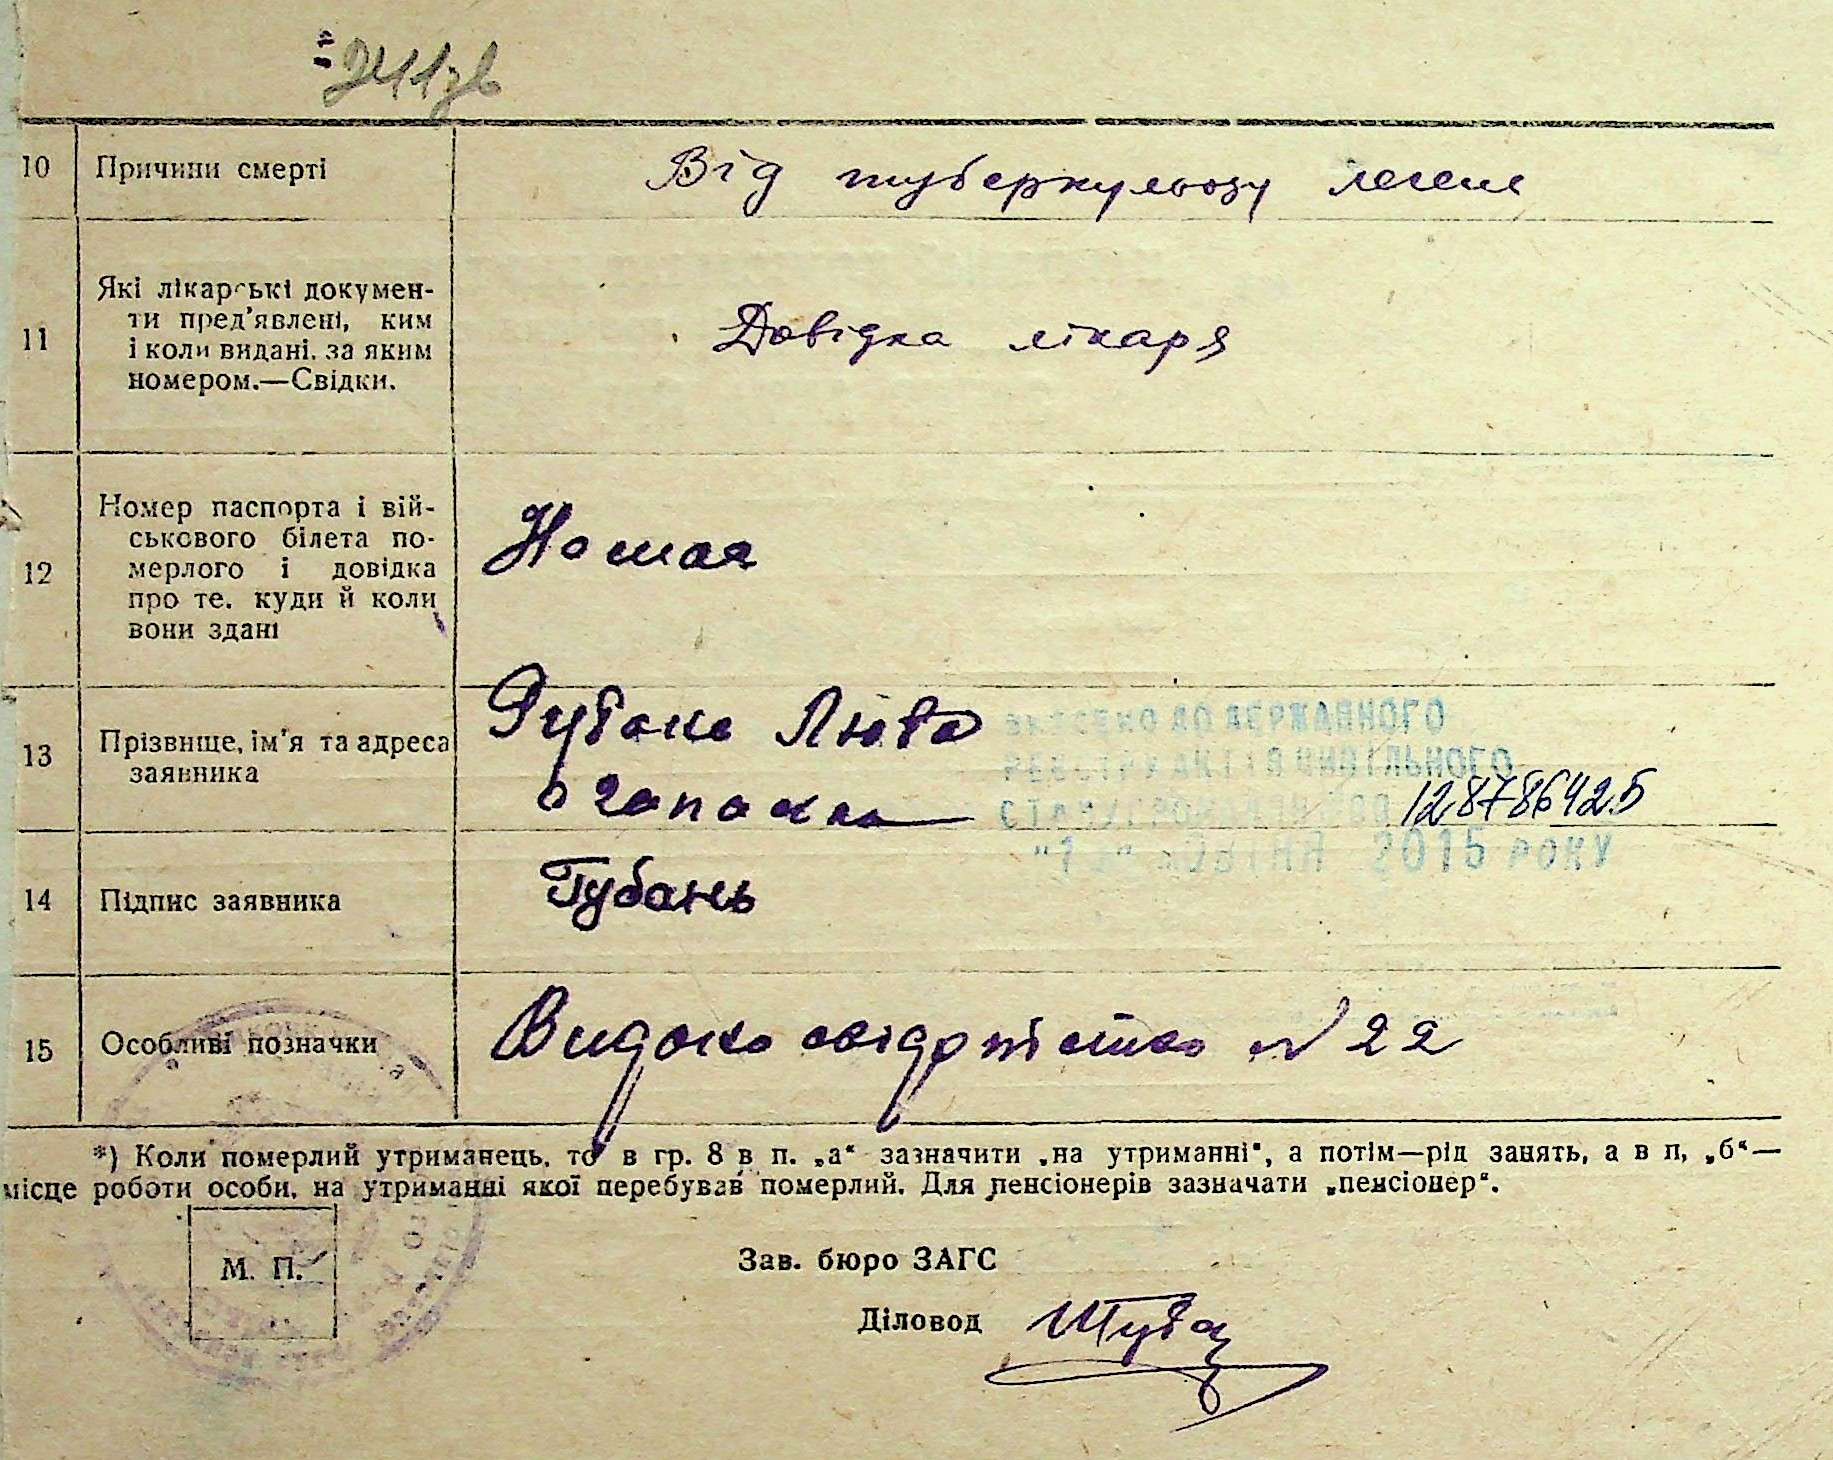 10 Причини смерті Від туберкульозу легень
11 Які лікарські докумен-
ти пред'явлені, ким
і коли видані, за яким
номером.—Свідки.
Довідка лікаря
12 Номер паспорта і вій-
ськового білета по-
мерлого і довідка
про те, куди й коли
вони здані
Немає
13 Прізвище, ім'я та адреса
заявника
Губань Люба
ВНЕСЕНО ДО ДЕРЖАВНОГО
РЕЄСТРУ АКТІВ ЦИВІЛЬНОГО
СТАНУ ГРОМАДЯН
128786425
ЖОВТНЯ 2015 РОКУ
14 Підпис заявника Губань
15 Особливі позначки Видано свідотство № 22
*) Коли померлий утриманець, то в гр. 8 в п. „а“ зазначити „на утриманні“, а потім—рід занять, а в п. „б“—
місце роботи особи, на утриманні якої перебував померлий. Для пенсіонерів зазначати „пенсіонер“.
М. П.
Зав. бюро ЗАГС
Діловод